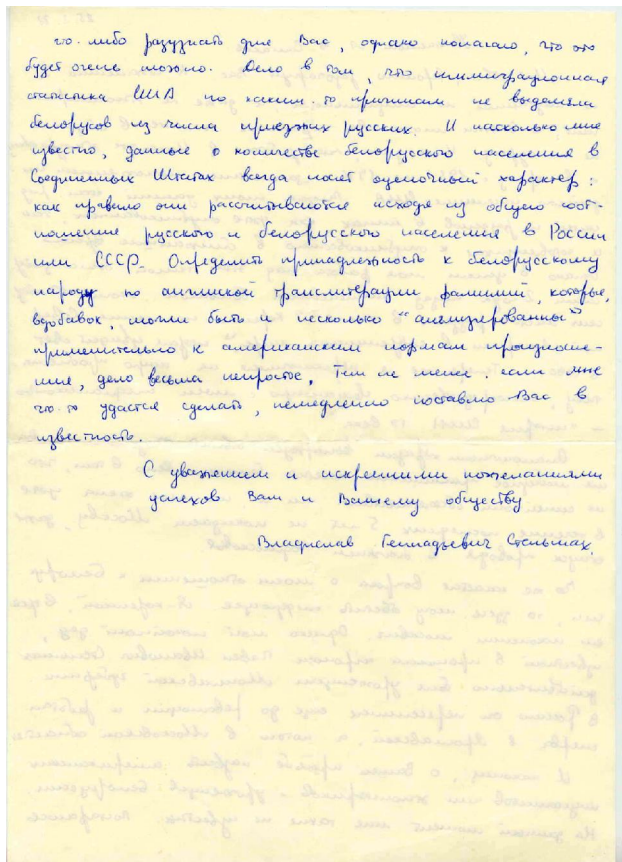 что-либо разузнать для Вас, однако полагаю, что это
будет очень сложно. Дело в том, что иммиграционная
статистика США по каким-то причинам не выделяла
белорусов из числа приезжих русских. И насколько мне
известно, данные о количестве белорусского населения в
Соединенных Штатах всегда носят оценочный характер:
как правило они рассчитываются исходя из общего соот-
ношения русского и белорусского населения в России
или СССР. Определить принадлежность к белорусскому
народу по английской транслитерации фамилий, которые,
вдобавок, могли быть и несколько "англизированны"
применительно к американским нормам произноше-
ния, дело весьма непростое. Тем не менее, если мне
что-то удастся сделать, немедленно поставлю Вас в
известность.
С уважением и искренними пожеланиями
успехов Вам и Вашему обществу
Владислав Геннадьевич